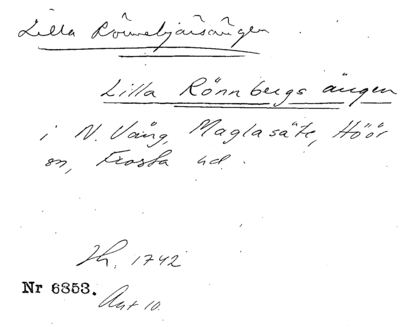 Lilla Rönnebjärsängen.
Lilla Rönnbergs ängen
i N. Vång, Maglasäte, Höör
sn, Frosta hd.
Sk. 1742
Nr 6353.
Akt 10.